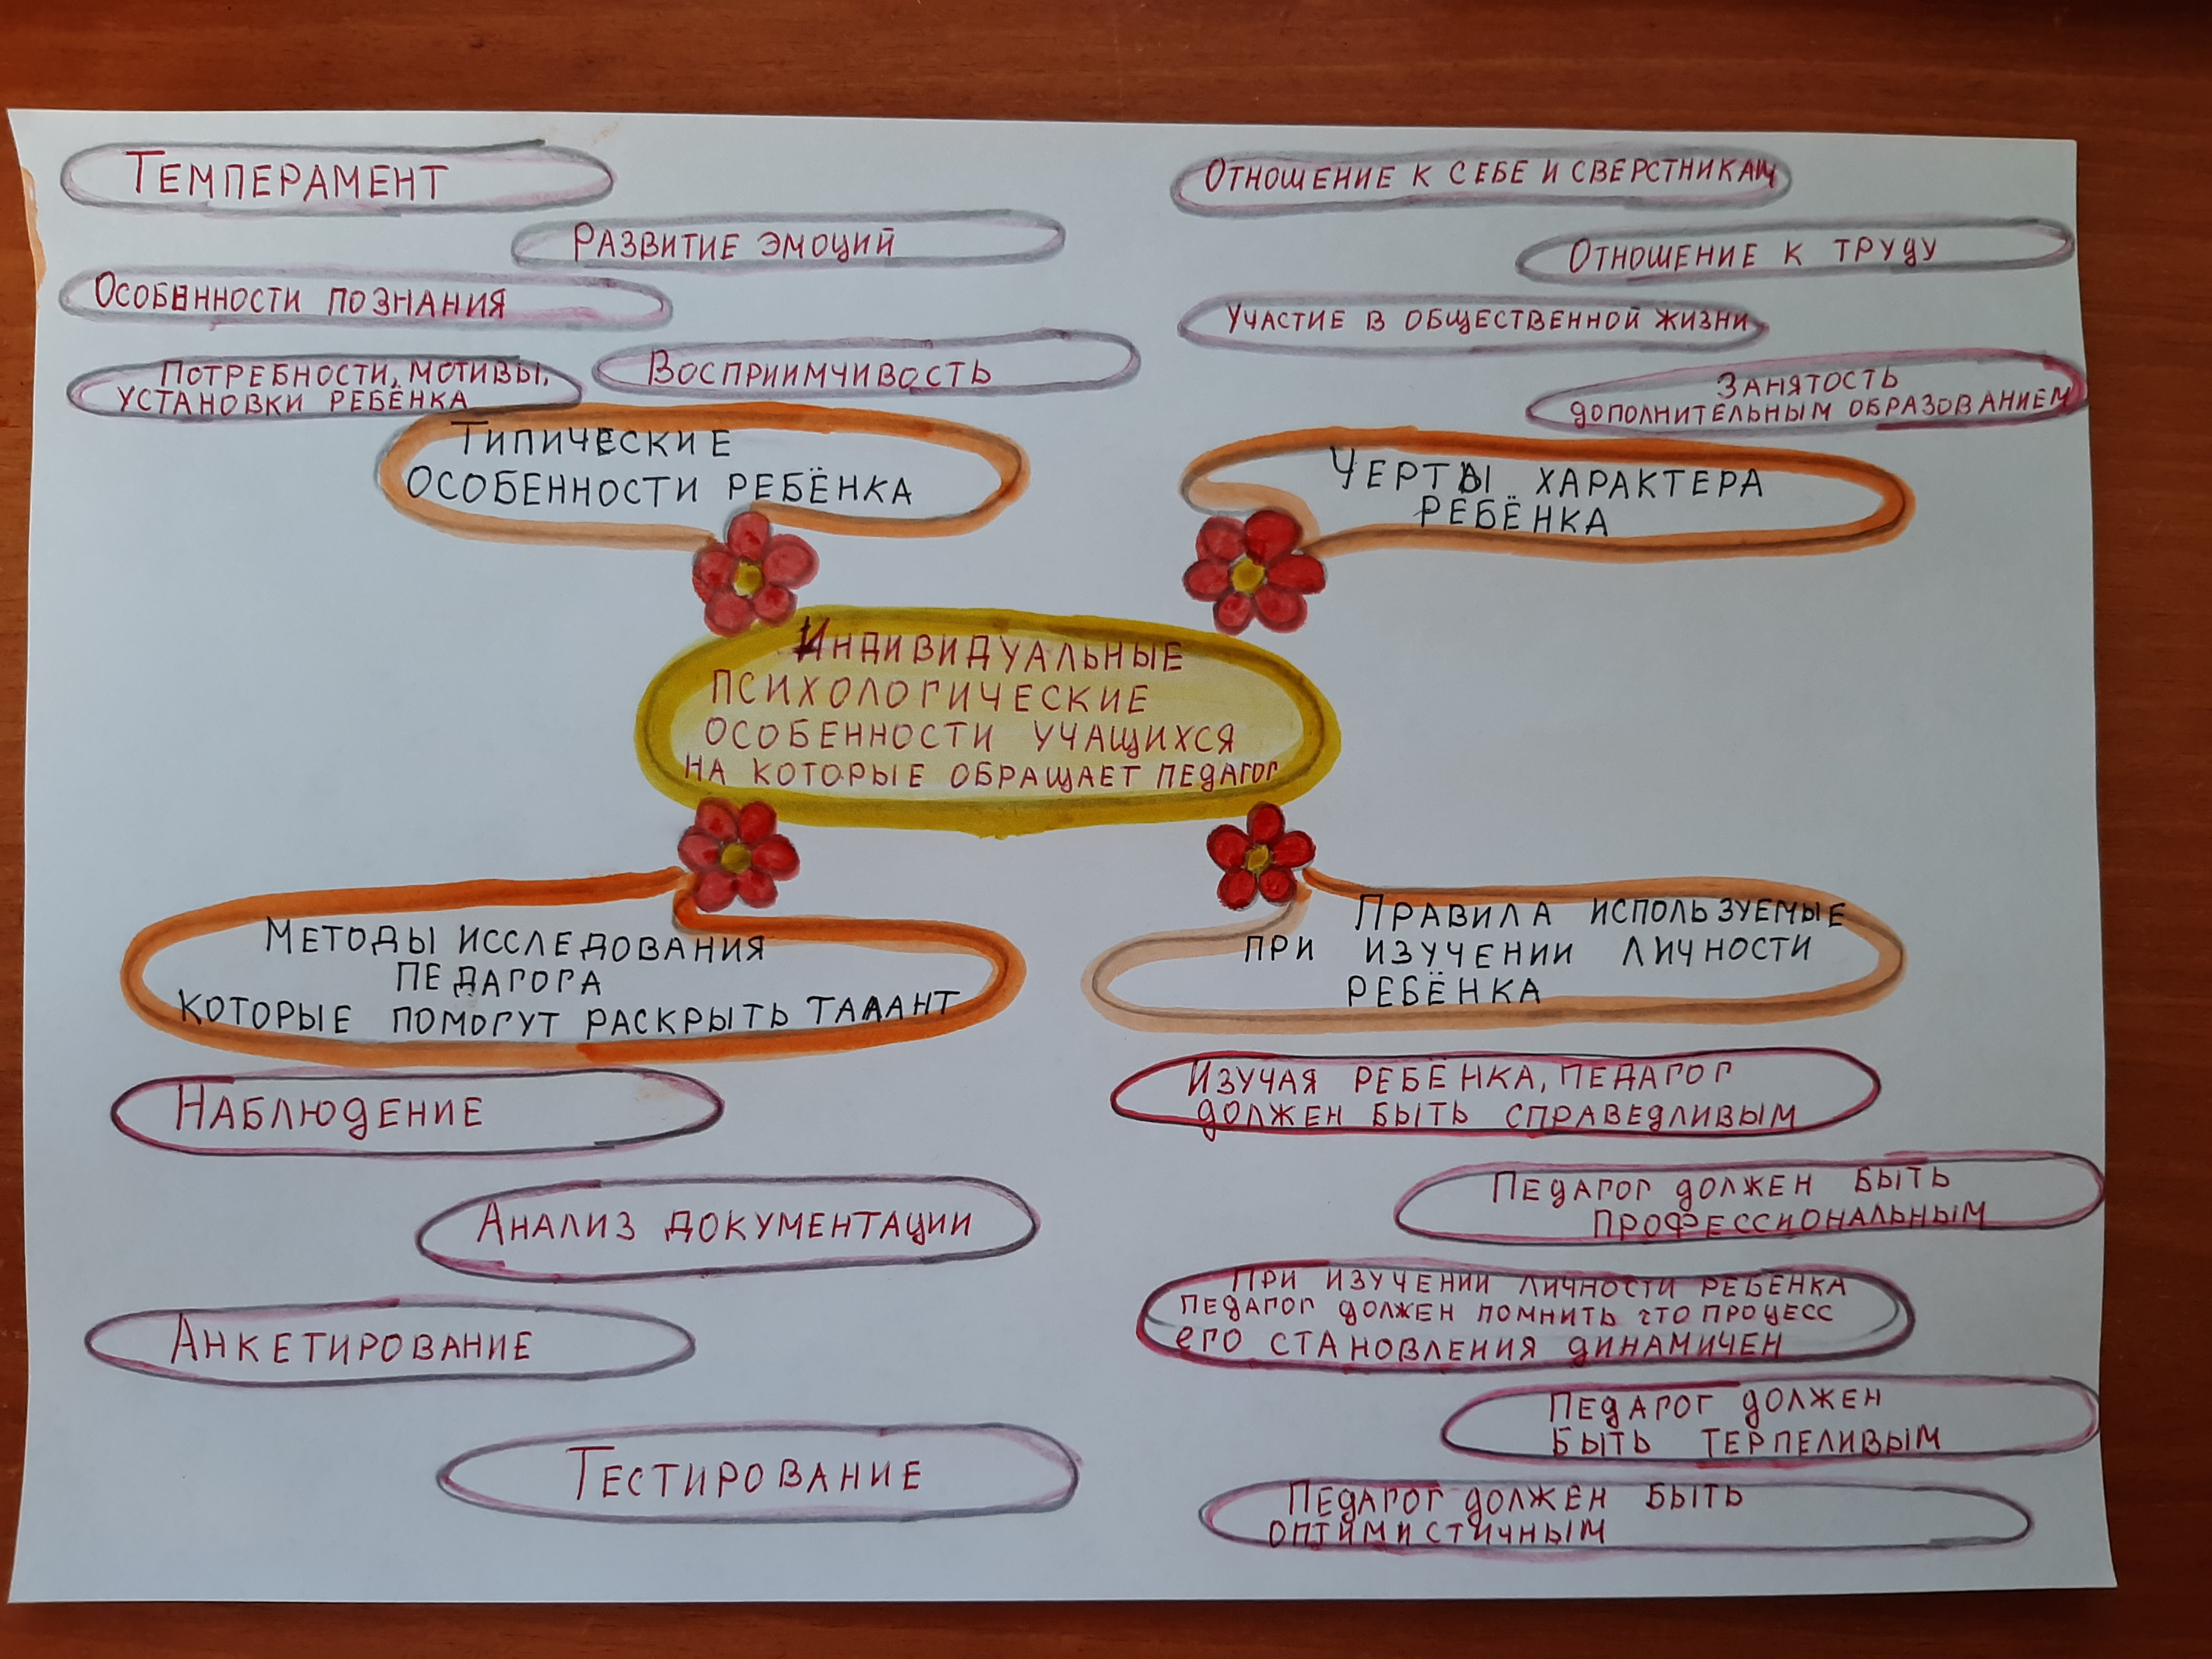 Темперамент
Развитие эмоций
Особенности познания
Восприимчивость
Потребности, мотивы,
установки ребёнка
Типические
особенности ребёнка
Отношение к себе и сверстникам
Отношение к труду
Участие в общественной жизни
Занятость
дополнительным образованием
Черты характера
ребёнка
Индивидуальные
психологические
особенности учащихся
на которые обращает педагог
Методы исследования
педагога
которые помогут раскрыть талант
Наблюдение
Анализ документации
Анкетирование
Тестирование
Правила используемые
при изучении личности
ребёнка
Изучая ребёнка, педагог
должен быть справедливым
Педагог должен быть
профессиональным
При изучении личности ребёнка
педагог должен помнить что процесс
его становления динамичен
Педагог должен
быть терпеливым
Педагог должен быть
оптимистичным